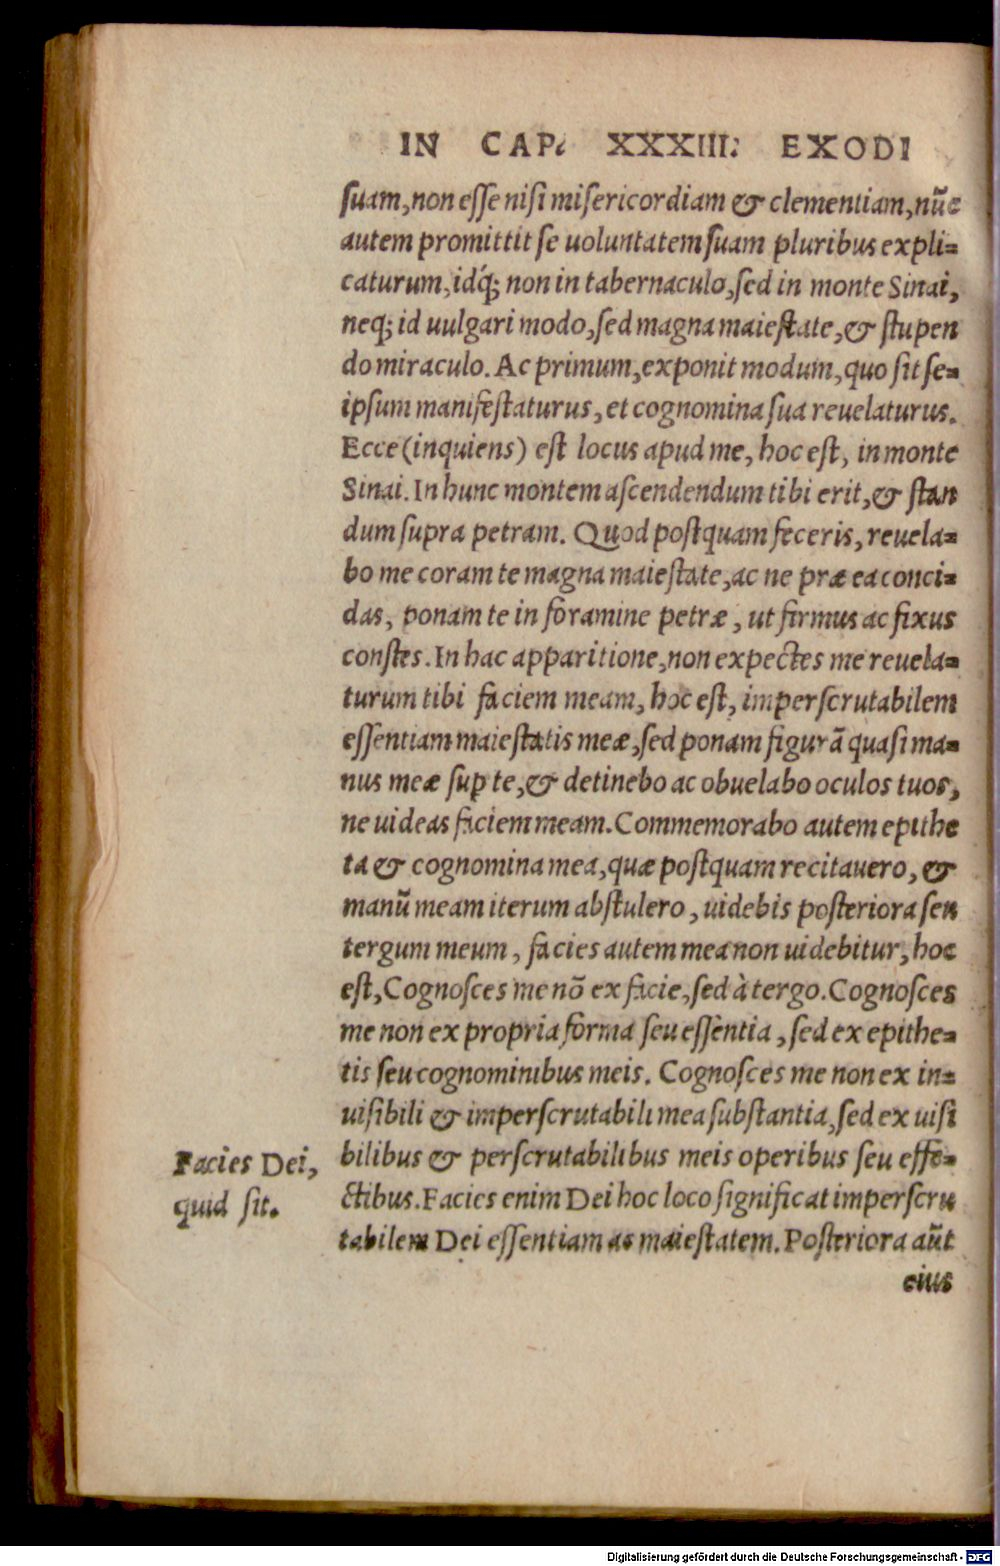 IN CAP. XXXIII. EXODI
suam, non esse nisi misericordiam & clementiam, nūc
autem promittit se uoluntatem suam pluribus expli=
caturum, idq́; non in tabernaculo, sed in monte Sinai,
neq; id uulgari modo, sed magna maiestate, & stupen
do miraculo. Ac primum, exponit modum, quo sit se=
ipsum manifestaturus, et cognomina sua reuelaturus.
Ecce (inquiens) est locus apud me, hoc est, in monte
Sinai. In hunc montem ascendendum tibi erit, & stan
dum supra petram. Quod postquam feceris, reuela=
bo me coram te magna maiestate, ac ne præ ea conci=
das, ponam te in foramine petræ, ut firmus ac fixus
constes. In hac apparitione, non expectes me reuela=
turum tibi faciem meam, hoc est, imperscrutabilem
essentiam maiestatis meæ, sed ponam figurā quasi ma=
nus meæ sup te, & detinebo ac obuelabo oculos tuos,
ne uideas faciem meam. Commemorabo autem epithe
ta & cognomina mea, quæ postquam recitauero, &
manū meam iterum abstulero, uidebis posteriora seu
tergum meum, facies autem mea non uidebitur, hoc
est, Cognosces me nō ex facie, sed à tergo. Cognosces
me non ex propria forma seu essentia, sed ex epithe=
tis seu cognominibus meis. Cognosces me non ex in=
uisibili & imperscrutabili mea substantia, sed ex uisi
bilibus & perscrutabilibus meis operibus seu effe=
ctibus. Facies enim Dei hoc loco significat imperscru
tabilem Dei essentiam ac maiestatem. Posteriora aūt
eius
Facies Dei,
quid sit.
Digitalisierung gefördert durch die Deutsche Forschungsgemeinschaft - DFG